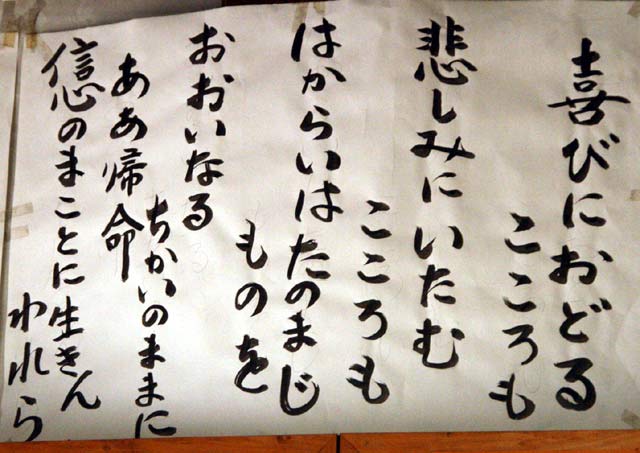 喜びにおどる
こころも
悲しみにいたむ
こころも
はからいはたのまじ
ものを
おおいなる
ちかいのままに
ああ帰命
信心のまことに生きん
われら